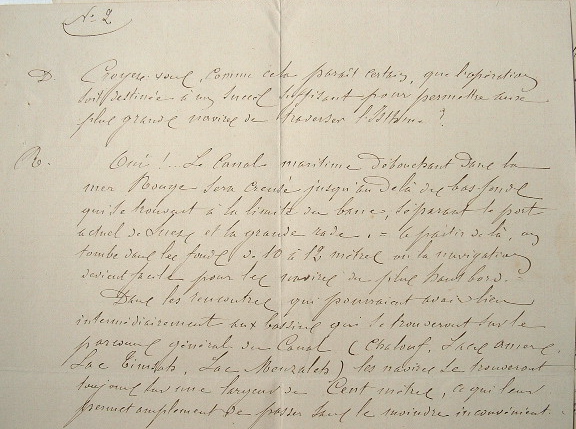 N° 2
D. Croyez-vous, comme cela paraît certain, que l'opération
soit destinée à un succès suffisant pour permettre aux
plus grands navires de traverser l'Isthme ?
R. Oui !... Le Canal maritime débouchant dans la
mer Rouge sera creusé jusqu'au delà des bas fonds
qui se trouvent à la limite du banc, séparant le port
actuel de Suez et la grande rade. = à partir de là, on
tombe dans les fonds de 10 à 12 mètres où la navigation
devient facile pour les navires du plus haut bord. =
Dans les rencontres qui pourraient avoir lieu
intermédiairement aux bassins qui se trouveront sur le
parcours général du Canal (Chalouf, Lacs amers,
Lac Timsah, Lac Menzaleh) les navires se trouveront
toujours sur une largeur de Cent mètres, ce qui leur
permet amplement de passer sans le moindre inconvénient.